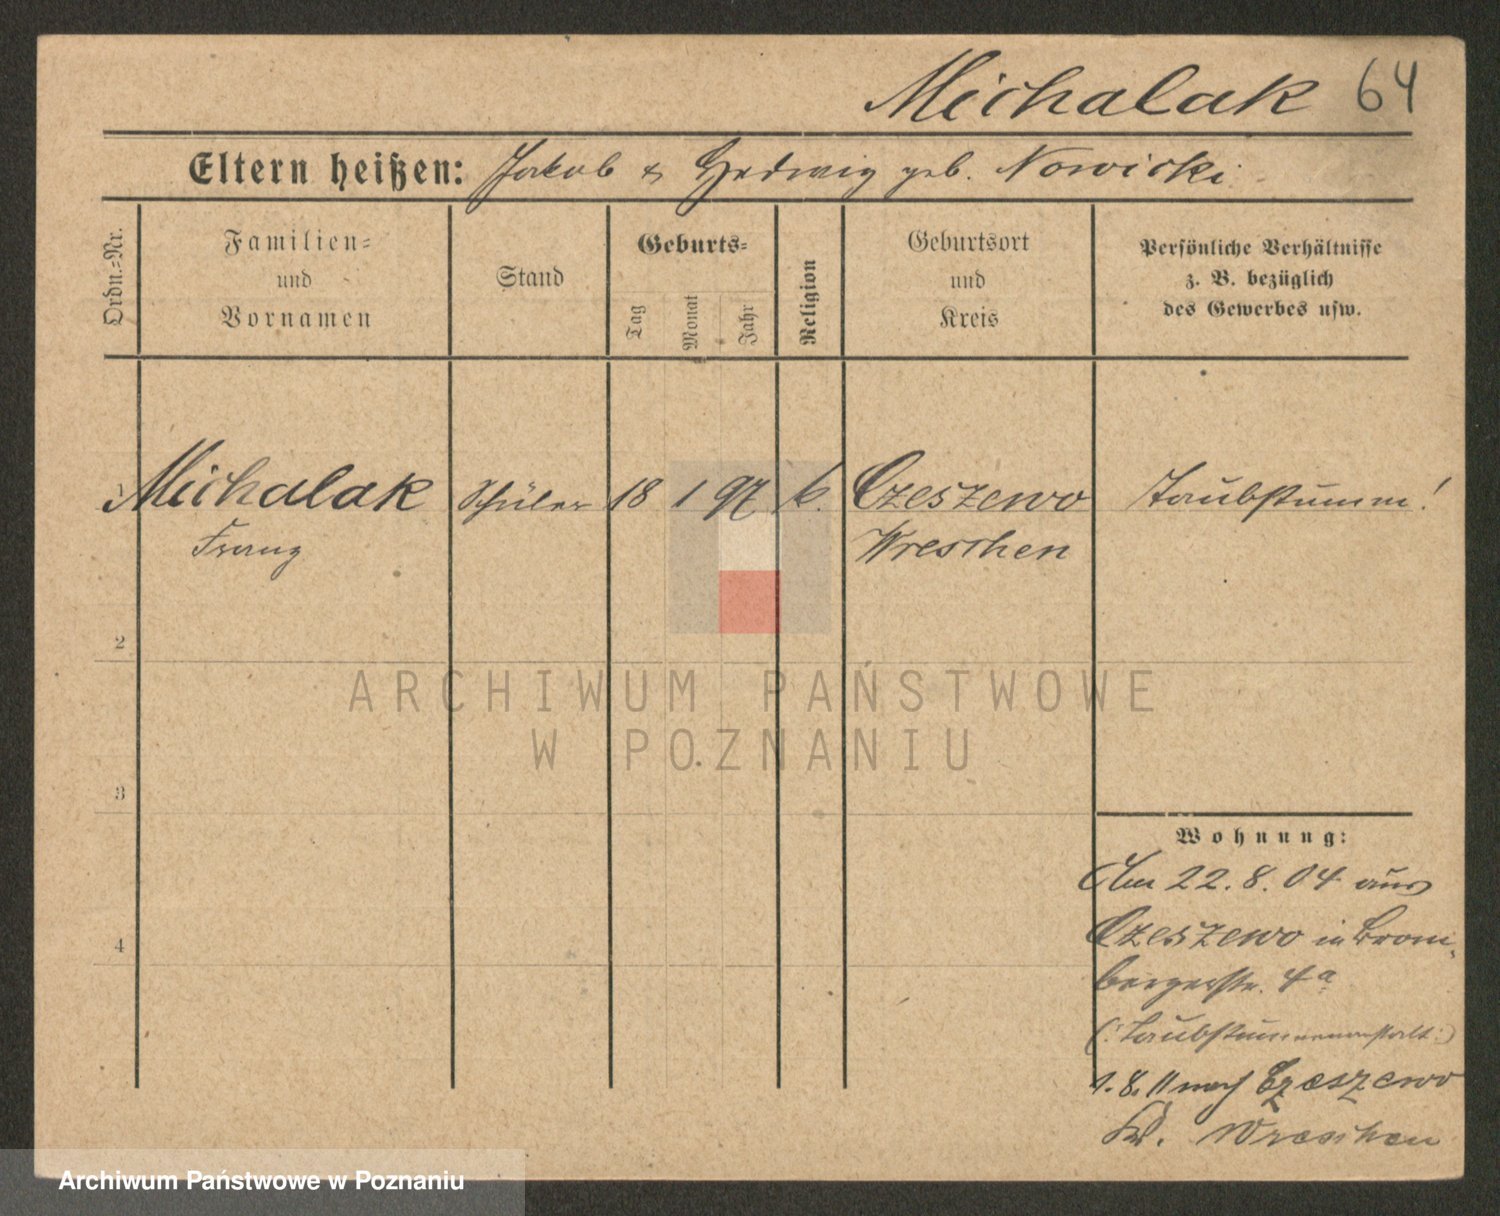 Michalak 64
Eltern heißen: Jakob & Hedwig geb. Nowicki
Ordn.-Nr.
Familien-
und
Vornamen
Stand
Geburts-
Tag
Monat
Jahr
Religion
Geburtsort
und
Kreis
Persönliche Verhältnisse
z. B. bezüglich
des Gewerbes usw.
Michalak Schüler 18 1 97 k. Czeszewo Taubstumm!
Franz Wreschen
2
ARCHIWUM PAŃSTWOWE
W POZNANIU
3
Wohnung:
Am 22. 8. 04 aus
Czeszewo in Brom-
bergerstr. 4a
(: Taubstummenanstalt :)
4
1. 8. 11 nach Czeszewo
Kr. Wreschen
Archiwum Państwowe w Poznaniu